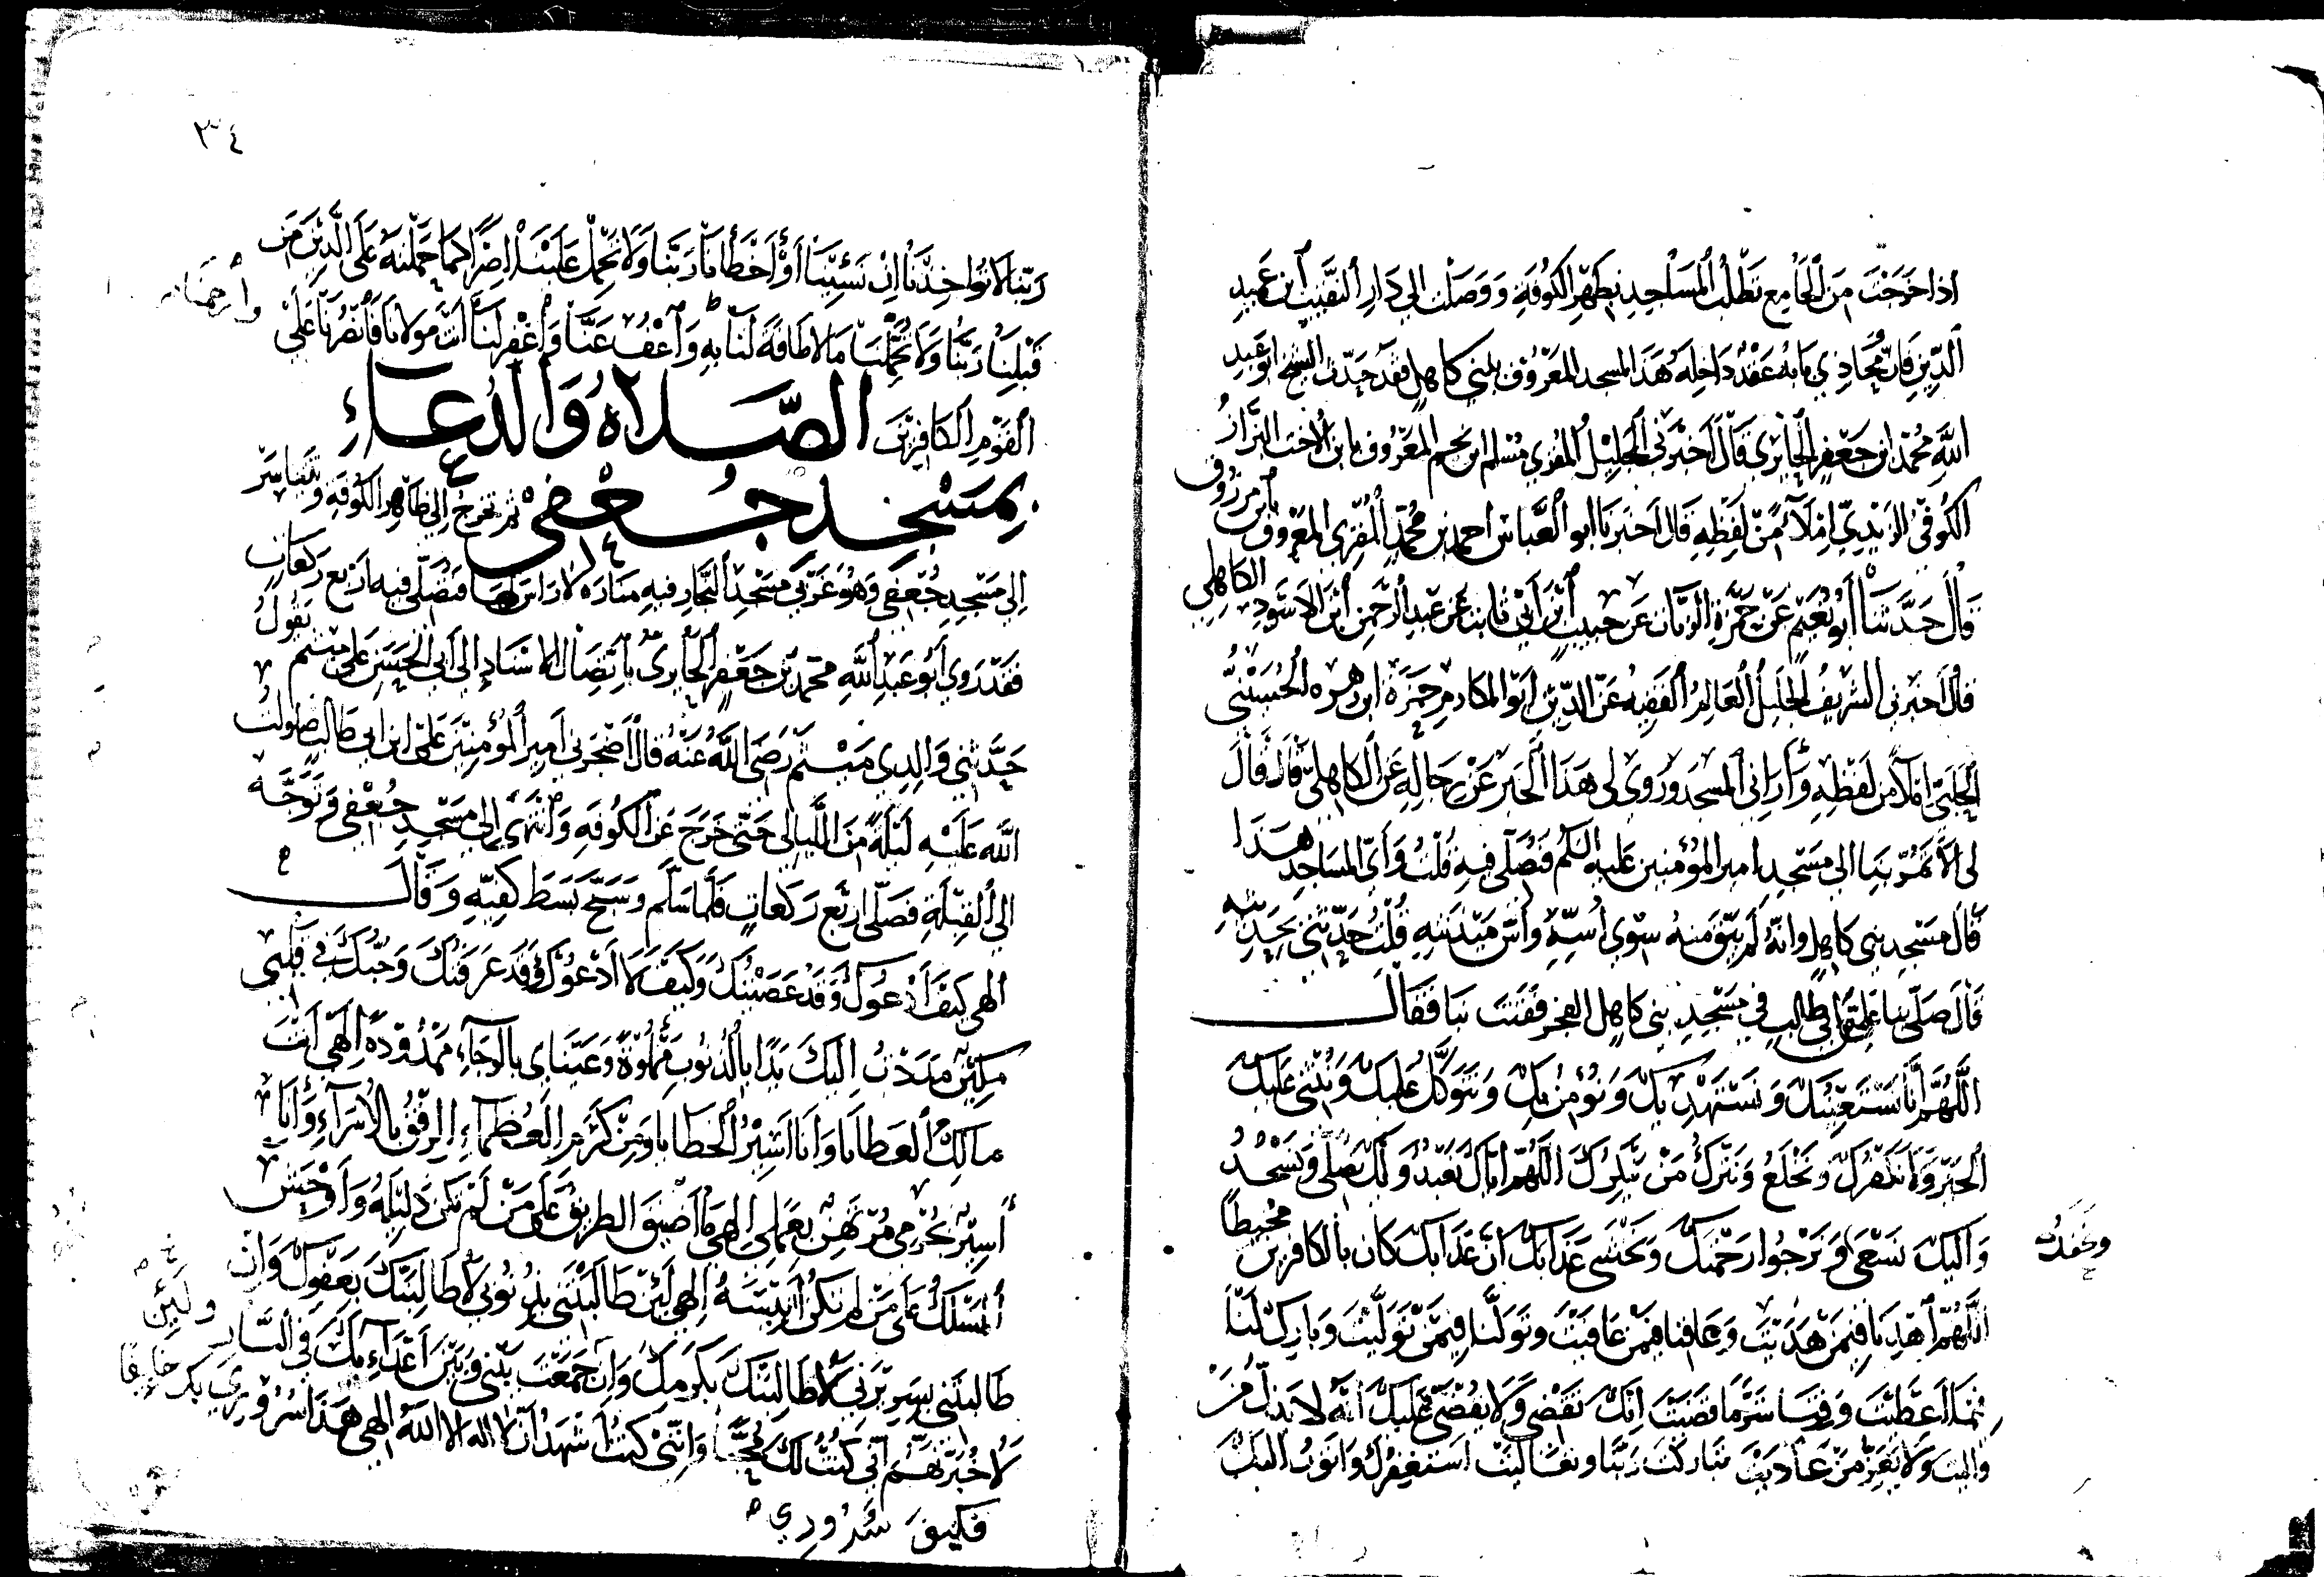 اذا خرجت من الجامع تطلب المساجد بظهر الكوفة ووصلت الى دار النقيب ابن عميد
الدين فان محاذي بابه عقد داخله هذا المسجد المعروف ببني كاهل فقد حدث الشيخ ابو عبد
الله محمد ابن جعفر الحائري قال اخبرني الجليل المقري مسلم ابن نجم المعروف بابن الاخت البزاز
الكوفي الزيدي املاء من لفظه قال اخبرنا ابو العباس احمد بن محمد المقري المعروف
قال حدثنا ابو نعيم عن حمزة الزيات عن حبيب ابن ابي ثابت عن عبد الرحمن ابن الاسود الكاهلي
قال اخبرني الشريف الجليل العالم الفقيه عز الدين ابو المكارم حمزة ابن زهره الحسيني
الحلبي املاء من لفظه واراني المسجد وروى لى هذا الخبر عن رجاله عن الكاهلي قال قال
لى الا تمر بنا الى مسجد امير المؤمنين عليه السلم فنصلى فيه قلت واى المساجد هذا
قال مسجد بني كاهل وانه لم يبق منه سوى اسه واس ميذنته قلت حدثني بحديثه
قال صلى بنا علي بن ابي طالب في مسجد بني كاهل الفجر فقنت بنا فقال
اللهم انا نستعينك ونستهديك ونؤمن بك ونتوكل عليك ونثني عليك
الخير ولا نكفرك ونخلع ونترك من ينكرك اللهم اياك نعبد ولك نصلى ونسجد
واليك نسعى ونرجوا رحمتك ونخشى عذابك ان عذابك كان بالكافرين محيطا
ونحفد
اللهم اهدنا فيمن هديت وعافنا فيمن عافيت وتولنا فيمن توليت وبارك لنا
فيما اعطيت وقنا شر ما قضيت انك تقضى ولا يقضى عليك انه لا يذل من
واليت ولا يعز من عاديت تباركت ربنا وتعاليت استغفرك واتوب اليك
٣٤
ربنا لا تواخذنا ان نسينا او اخطأنا ربنا ولا تحمل علينا اصرا كما حملته على الذين من
قبلنا ربنا ولا تحملنا ما لا طاقة لنا به واعف عنا واغفر لنا انت مولانا فانصرنا على
وارحمنا
القوم الكافرين الصلاة والدعاء
بمسجد جعفي ثم تخرج الى ظاهر الكوفة وتتياسر
الى مسجد جعفي وهو غربي مسجد النجار فيه منارة لا راس لها فتصلى فيه اربع ركعات
فقد روى ابو عبد الله محمد بن جعفر الحائري باتصال الاسناد الى ابي الحسن على ميثم يقول
حدثني والدي ميثم رضى الله عنه قال اصحرني امير المؤمنين على ابن ابي طالب صلوات
الله عليه ليلة من الليالى حتى خرج عن الكوفة وانتهى الى مسجد جعفي وتوجه
الى القبلة فصلى اربع ركعات فلما سلم وسبح بسط كفيه وقال
الهي كيف ادعوك وقد عصيتك وكيف لا ادعوك وقد عرفتك وحبك في قلبي
مكين مددت اليك يدا بالذنوب مملوة وعيناى بالرجاء ممدودة الهي انت
مالك العطايا وانا اسير الخطايا ومن كرم العظماء الرفق بالاسراء وانا
اسير بجرمي مرتهن بعملي الهي ما اضيق الطريق على من لم تكن دليله واوحش
المسلك على من لم تكن انيسه الهي لئن طالبتني بذنوبي لاطالبنك بعفوك وان
ولئن
طالبتني بسريرتي لاطالبنك بكرمك وان جمعت بيني وبين اعدائك في النار
لاخبرنهم اني كنت لك محبا وانني كنت اشهد ان لا اله الا الله الهي هذا سروري بك خايفا
فكيف سروري